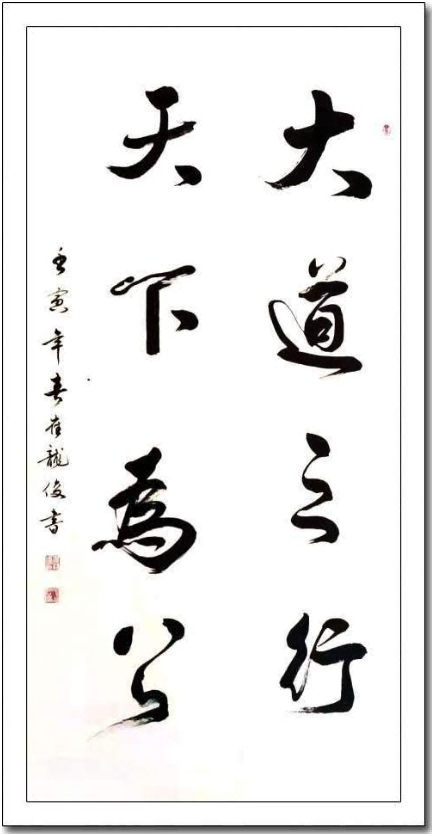 大道之行
天下為公
壬寅年春崔龍俊書